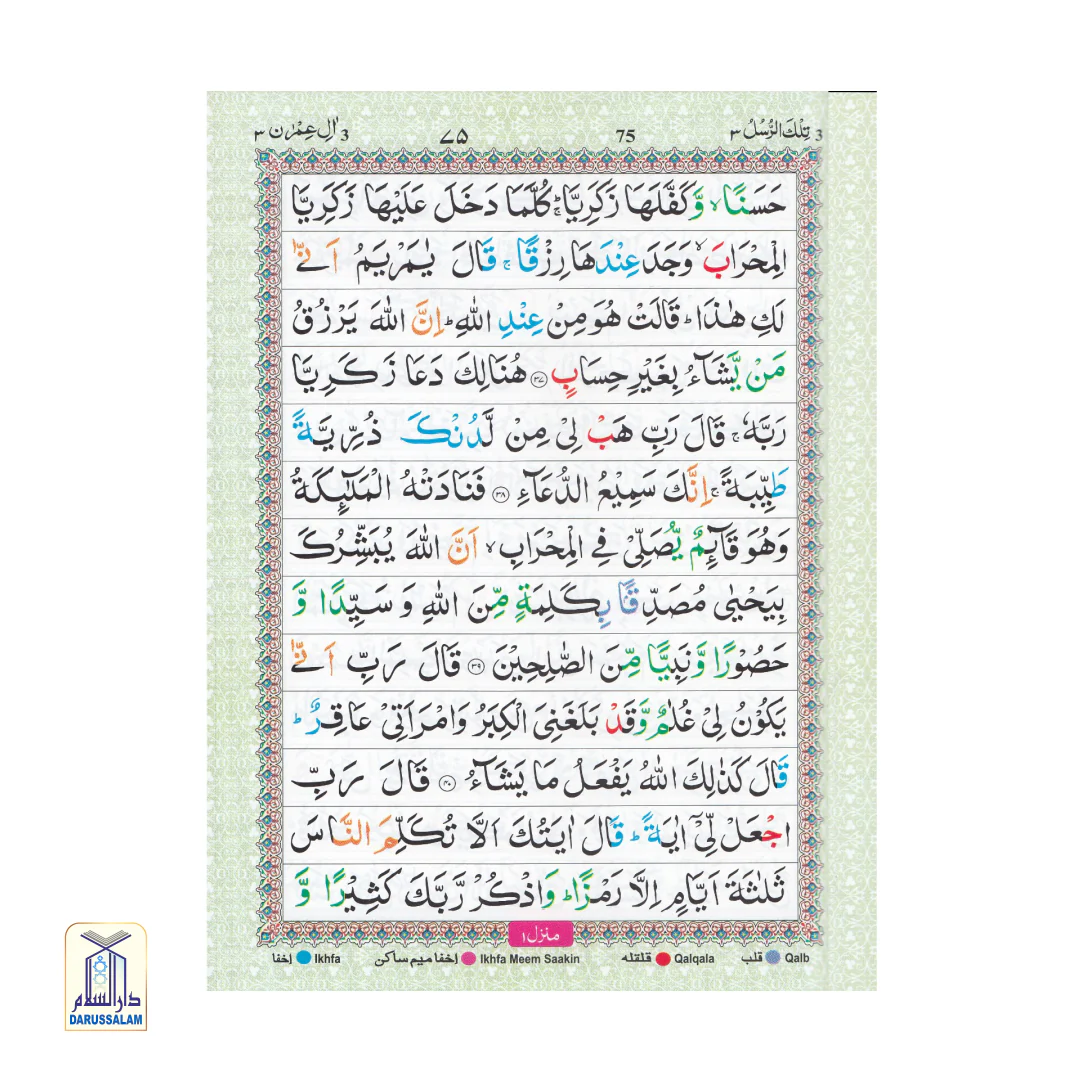 3 تِلْكَ الرُّسُلُ ٣ 75 ٧٥ 3 اٰلِ عِمْرٰن ٣
حَسَنًا ۙ وَّ كَفَّلَهَا زَكَرِيَّا ؕۚ كُلَّمَا دَخَلَ عَلَيْهَا زَكَرِيَّا
الْمِحْرَابَ ۙ وَجَدَ عِنْدَهَا رِزْقًا ۚ قَالَ يٰمَرْيَمُ اَنّٰى
لَكِ هٰذَا ؕ قَالَتْ هُوَ مِنْ عِنْدِ اللّٰهِ ؕ اِنَّ اللّٰهَ يَرْزُقُ
مَنْ يَّشَآءُ بِغَيْرِ حِسَابٍ ۝٣٧ هُنَالِكَ دَعَا زَكَرِيَّا
رَبَّهٗ ۚ قَالَ رَبِّ هَبْ لِىْ مِنْ لَّدُنْكَ ذُرِّيَّةً
طَيِّبَةً ۚ اِنَّكَ سَمِيْعُ الدُّعَآءِ ۝٣٨ فَنَادَتْهُ الْمَلٰٓئِكَةُ
وَهُوَ قَآئِمٌ يُّصَلِّىْ فِى الْمِحْرَابِ ۙ اَنَّ اللّٰهَ يُبَشِّرُكَ
بِيَحْيٰى مُصَدِّقًۢا بِكَلِمَةٍ مِّنَ اللّٰهِ وَ سَيِّدًا وَّ
حَصُوْرًا وَّ نَبِيًّا مِّنَ الصّٰلِحِيْنَ ۝٣٩ قَالَ رَبِّ اَنّٰى
يَكُوْنُ لِىْ غُلٰمٌ وَّقَدْ بَلَغَنِىَ الْكِبَرُ وَامْرَاَتِىْ عَاقِرٌ ؕ
قَالَ كَذٰلِكَ اللّٰهُ يَفْعَلُ مَا يَشَآءُ ۝٤٠ قَالَ رَبِّ
اجْعَلْ لِّىْۤ اٰيَةً ؕ قَالَ اٰيَتُكَ اَلَّا تُكَلِّمَ النَّاسَ
ثَلٰثَةَ اَيَّامٍ اِلَّا رَمْزًا ؕ وَاذْكُرْ رَّبَّكَ كَثِيْرًا وَّ
منزل ١
Qalb قلب Qalqala قلقله Ikhfa Meem Saakin إخفا ميم ساكن Ikhfa إخفا
دار السلام
DARUSSALAM